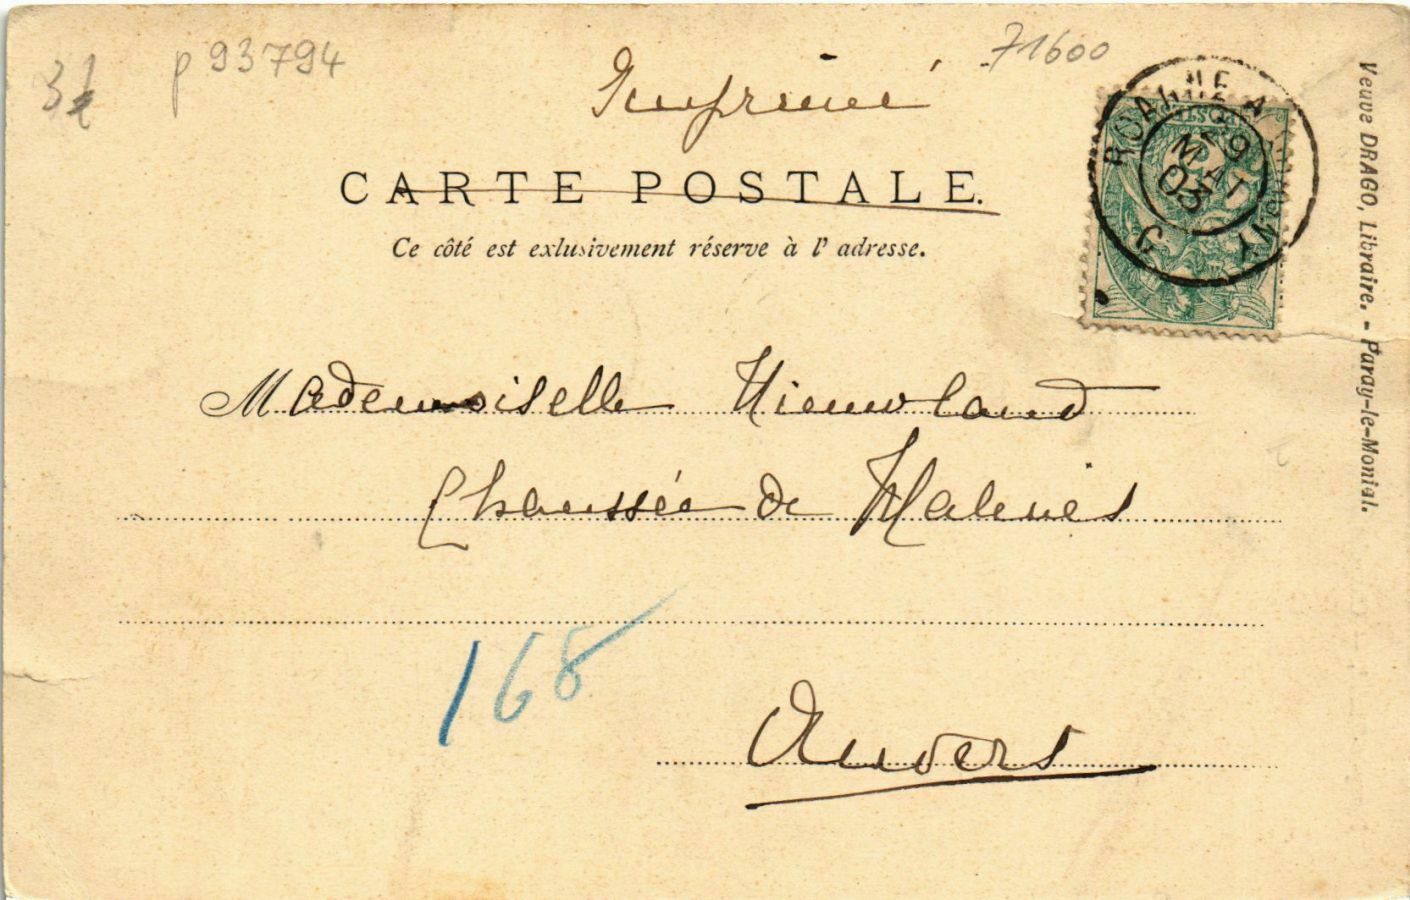 3£
p 93794
71600
Imprimé
CARTE POSTALE.
Ce côté est exlusivement réserve à l' adresse.
ROANNE A
29
MAI
03
Mademoiselle Nieuwland
Chaussée de Malines
168
Anvers
Veuve DRAGO, Libraire. - Paray-le-Monial.